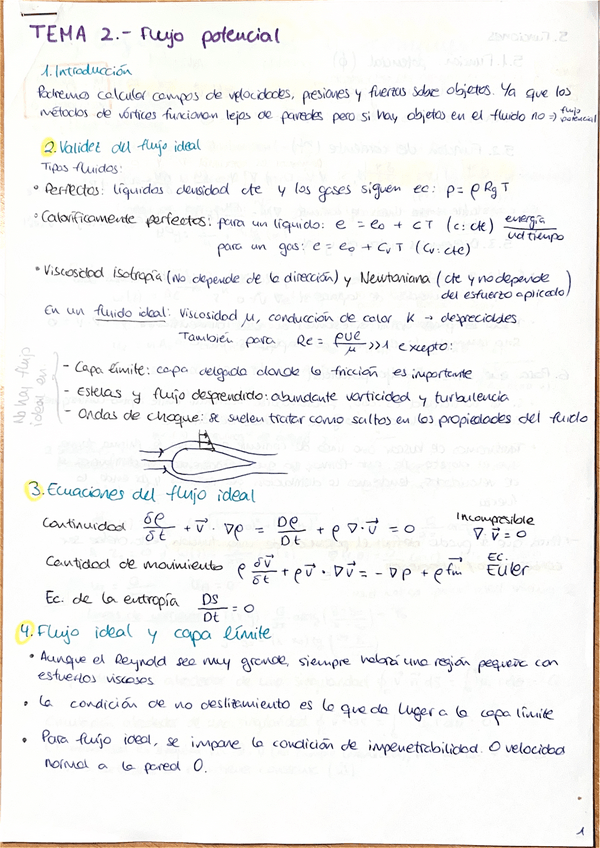 TEMA 2.- Flujo potencial
1. Introducción
Podremos calcular campos de velocidades, presiones y fuerzas sobre objetos. Ya que los
métodos de vórtices funcionan lejos de paredes pero si hay objetos en el fluido no => flujo potencial
2. Validez del flujo ideal
Tipos fluidos:
• Perfectos: líquidos densidad cte y los gases siguen ec: p = ρ Rg T
• Caloríficamente perfectos: para un líquido: e = e₀ + cT (c: cte) energía / ud tiempo
para un gas: e = e₀ + Cv T (Cv: cte)
• Viscosidad isotropía (No depende de la dirección) y Newtoniana (cte y no depende
del esfuerzo aplicado)
En un fluido ideal: viscosidad μ, conducción de calor K → despreciables
También para Re = ρve/μ >>1 excepto:
No hay flujo ideal en
- Capa límite: capa delgada donde la fricción es importante
- Estelas y flujo desprendido: abundante vorticidad y turbulencia
- Ondas de choque: se suelen tratar como saltos en las propiedades del fluido
3. Ecuaciones del flujo ideal
Continuidad δρ/δt + v⃗ · ∇ρ = Dρ/Dt + ρ ∇ · v⃗ = 0 Incompresible ∇ · v⃗ = 0
Cantidad de movimiento ρ δv⃗/δt + ρ v⃗ · ∇v⃗ = - ∇p + ρ f⃗m Ec. Euler
Ec. de la entropía DS/Dt = 0
4. Flujo ideal y capa límite
• Aunque el Reynold sea muy grande, siempre habrá una región pequeña con
esfuerzos viscosos
• La condición de no deslizamiento es la que da lugar a la capa límite
• Para flujo ideal, se impone la condición de impenetrabilidad. O velocidad
normal a la pared 0.
1